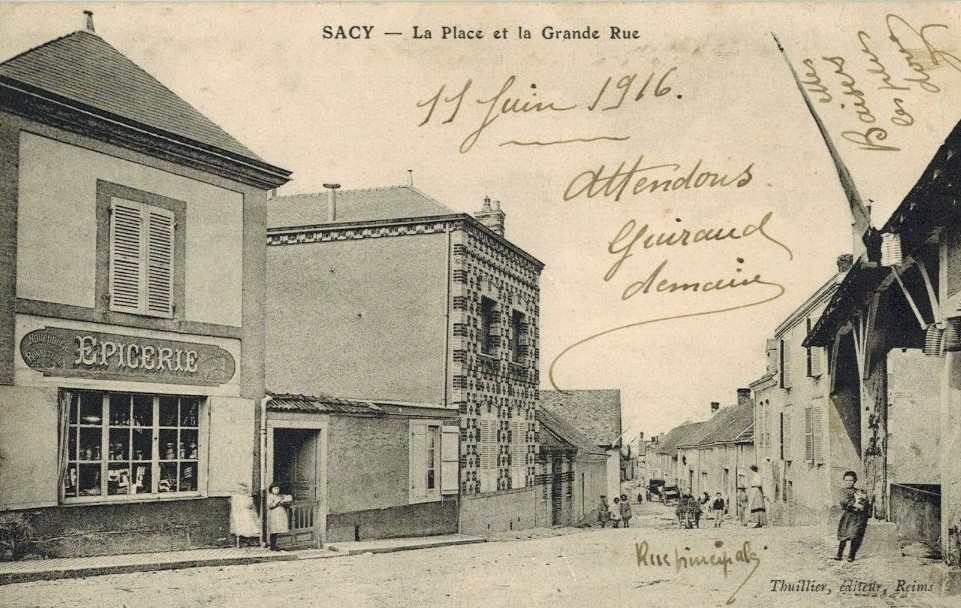 SACY — La Place et la Grande Rue
11 Juin 1916.
Attendons
Guiraud
demain
Baisers
EPICERIE
Rue principale
Thuillier, éditeur, Reims